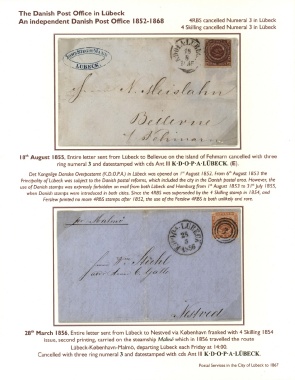 The Danish Post Office in Lübeck
An independent Danish Post Office 1852-1868
4RBS cancelled Numeral 3 in Lübeck
4 Skilling cancelled Numeral 3 in Lübeck
LÜBECK.
Bellevue
18th August 1853, Entire letter sent from Lübeck to Bellevue on the island of Fehmarn cancelled with three
ring numeral 3 and datestamped with cds Ant II K·D·O·P·A·LÜBECK. (E).
Det Kongelige Danske Overpostamts (K.D.O.P.A.) in Lübeck was opened on 1st August 1852. From 6th August 1853 the
Principality of Lübeck was subject to the Danish postal reforms, which included the city in the Danish postal area. However, the
use of Danish stamps was expressly forbidden on mail from both Lübeck and Hamburg from 1st August 1853 to 31st July 1855,
when Danish stamps were introduced in both cities. Since the 4RBS was superseded by the 4 Skilling stamp in 1854, and
Ferslew printed no more 4RBS stamps after 1852, the use of the Ferslew 4RBS is both unlikely and rare.
per Malmö
Nestved
28th March 1856, Entire letter sent from Lübeck to Nestved via København franked with 4 Skilling 1854
issue, second printing, carried on the steamship Malmö which in 1856 travelled the route
Lübeck-København-Malmö, departing Lübeck each Friday at 14:00.
Cancelled with three ring numeral 3 and datestamped with cds Ant II K·D·O·P·A·LÜBECK.
Postal Services in the City of Lübeck to 1867